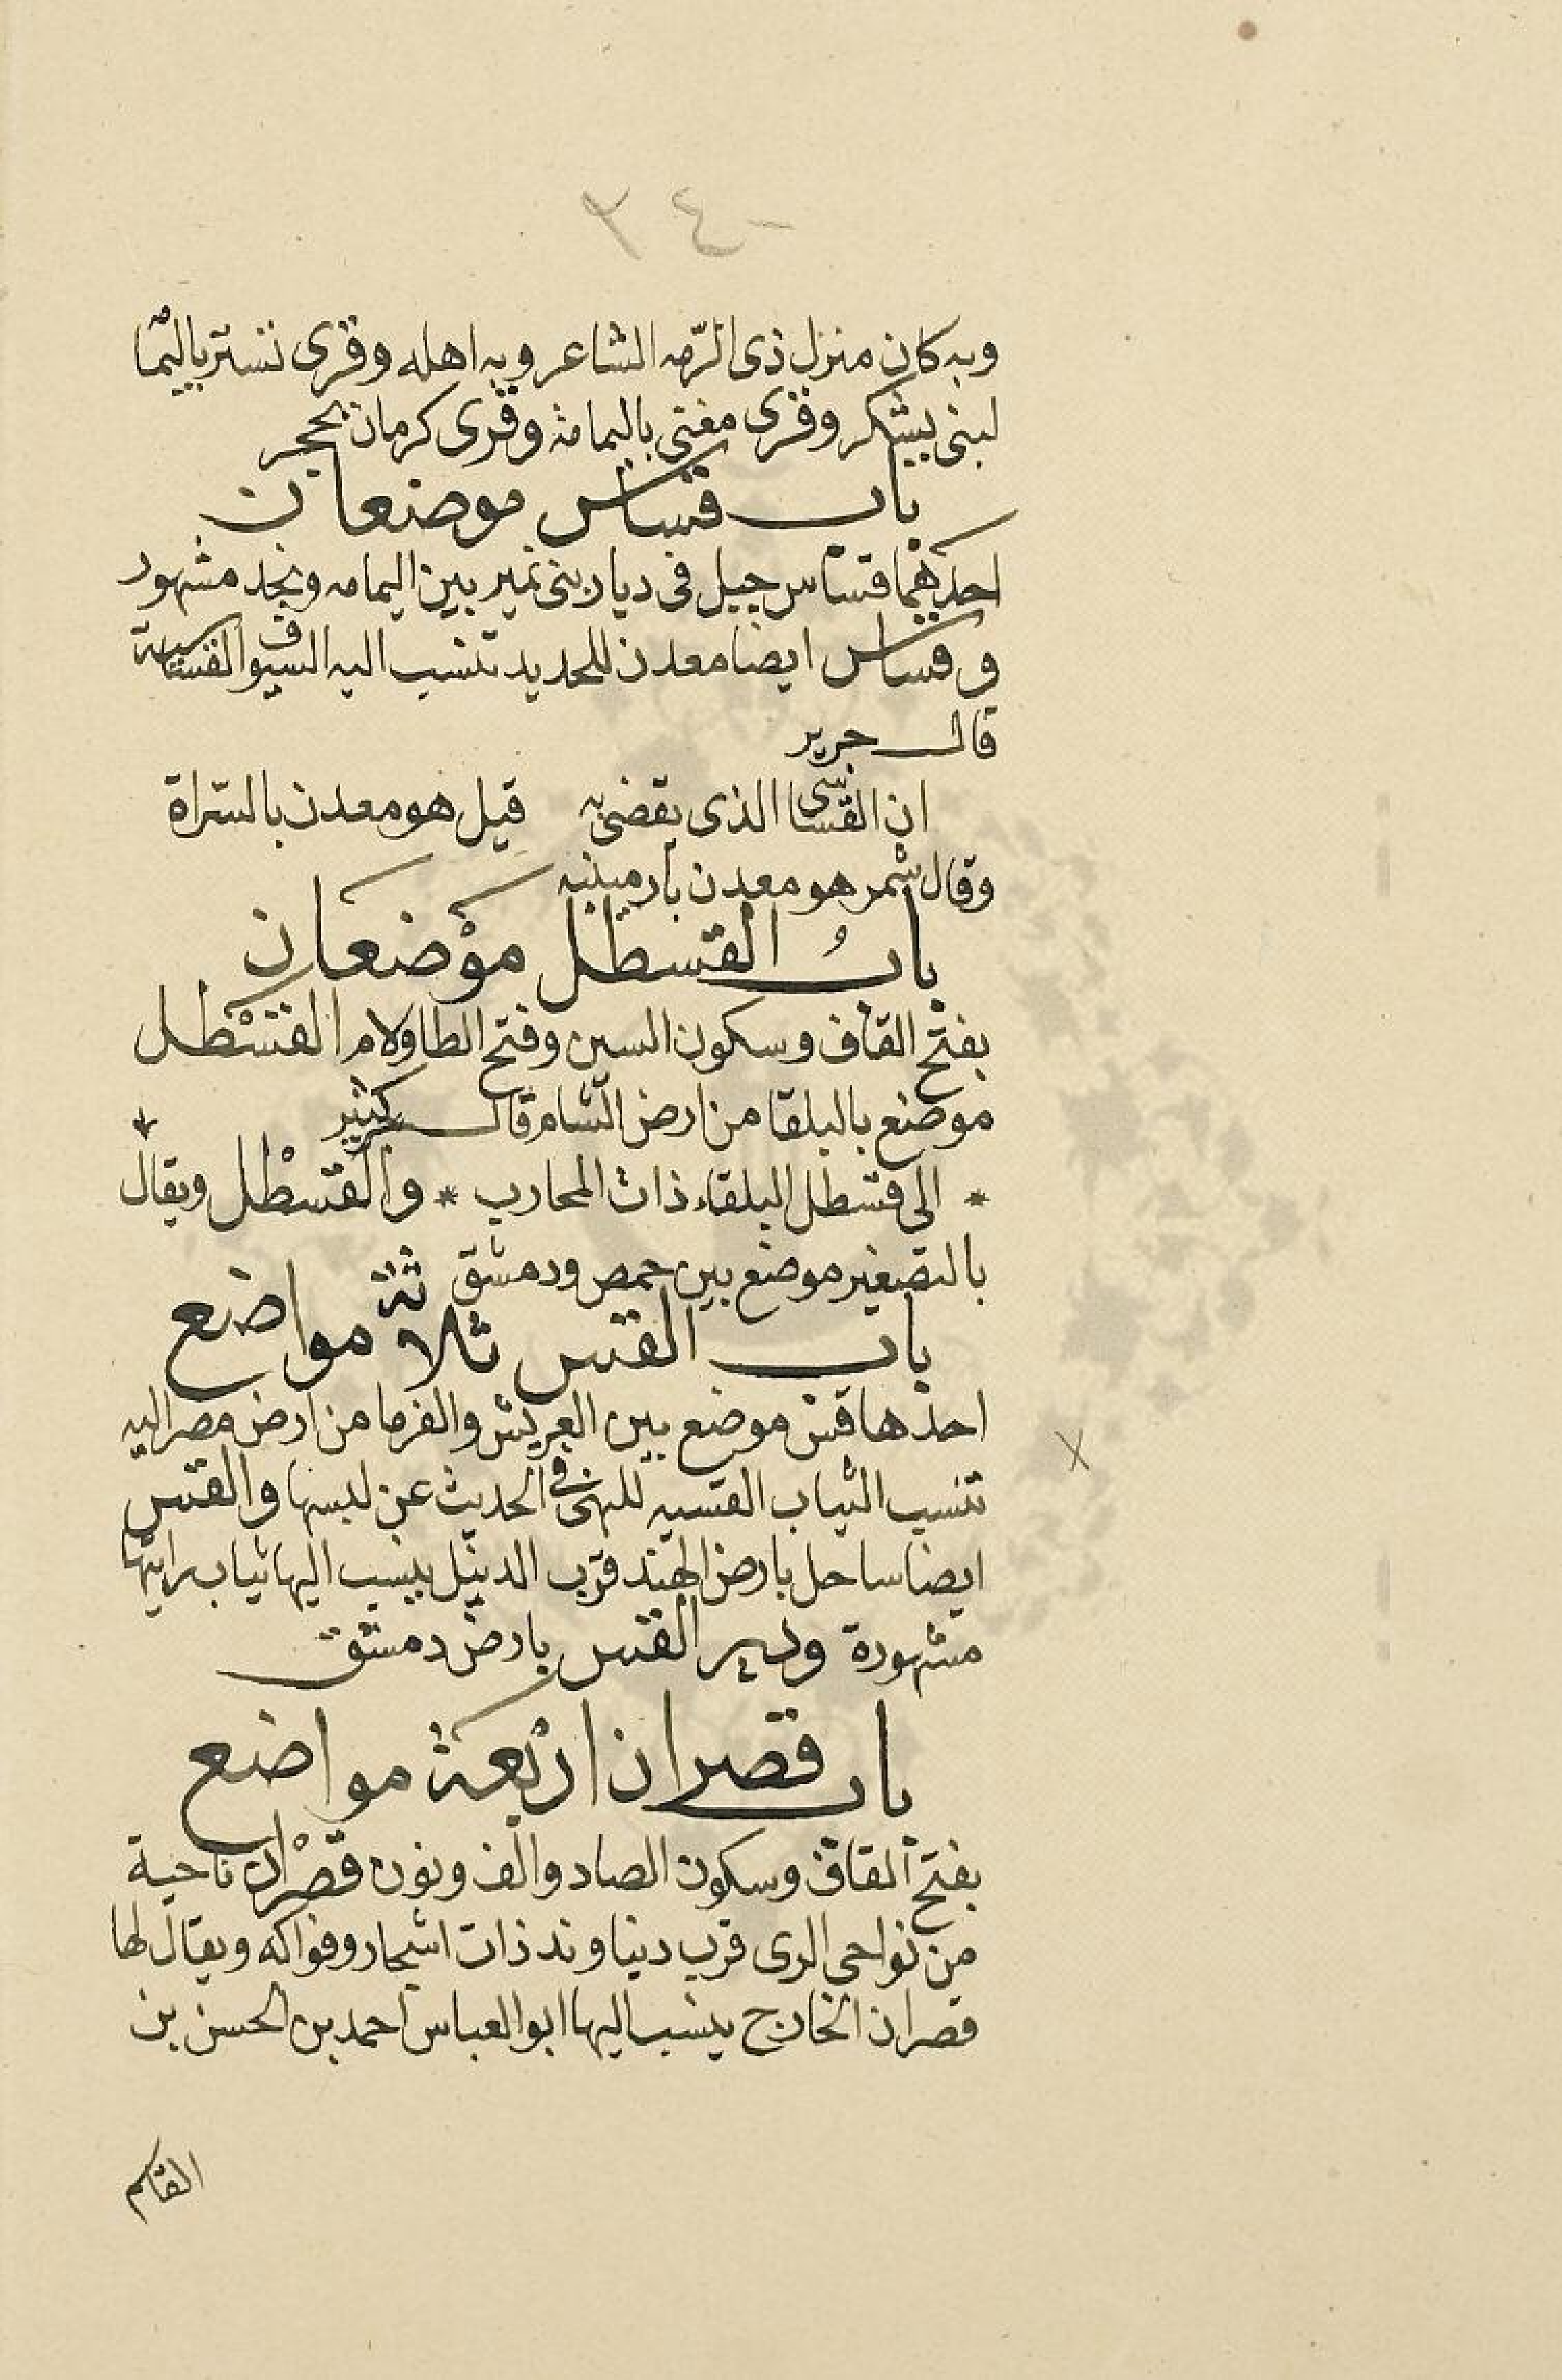 ٣٤٠
وبه كان منزل ذى الرّمه الشاعر وبه اهله وقرى تستر باليمامه
لبنى يشكر وقرى مغنى باليمامة وقرى كرمان بحجر
باب قساس موضعان
احدهما قساس جبل فى ديار بنى نمير بين اليمامه ونجد مشهور
وقساس ايضا معدن للحديد تنسب اليه السيوف القساسية
قال جرير
ان القساسى الذى يقضى به قيل هو معدن بالسّراة
وقال شمر هو معدن بارمينيه
بابُ القسطل موْضعان
بفتح القاف وسكون السين وفتح الطا ولام القسْطل
موضع بالبلقا من ارض الشام قال كثير
* الى قسطل البلقاء ذات المحارب * والقسْطل ويقال
بالتصغير موضع بين حمص ودمشق
باب القس ثلاثة مواضع
احدها قس موضع بين العريش والفرما من ارض مصر اليه
تنسب الثياب القسيه للنهى فى الحديث عن لبسها والقس
ايضا ساحل بارض الهند قرب الديبل ينسب اليها ثياب رايتها
مشهورة ودير القس بارض دمشق
باب قصران اربعة مواضع
بفتح القاف وسكون الصاد والف ونون قصْران ناحية
من نواحى الرى قرب دنباوند ذات اشجار وفواكه ويقال لها
قصران الخارج ينسب اليها ابو العباس احمد بن الحسن بن
القاسم